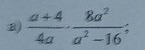 в) \frac{a+4}{4a} \cdot \frac{8a^2}{a^2-16};